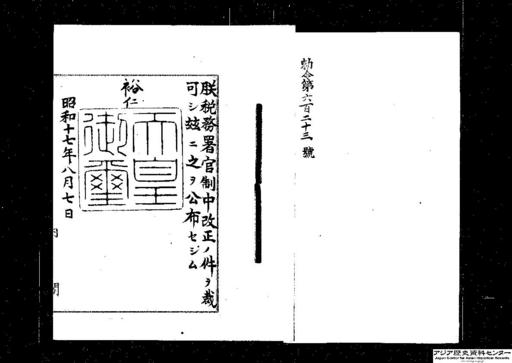 勅令第六百二十三號
朕税務署官制中改正ノ件ヲ裁
可シ茲ニ之ヲ公布セシム
裕仁
天皇
御璽
昭和十七年八月七日
アジア歴史資料センター
Japan Center for Asian Historical Records